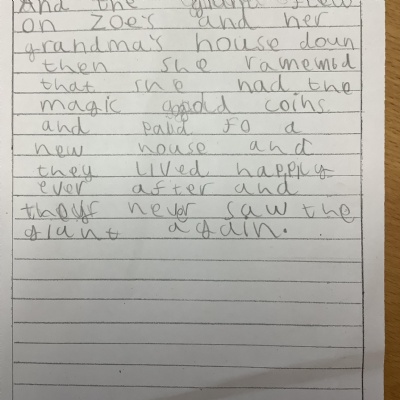 And the giant blew
on Zoe's and her
grandma's house doun
then she ramembd
that she had the
magic gold coins.
and paid fo a
new house and
they lived happily
ever after and
they never saw the
giant again.